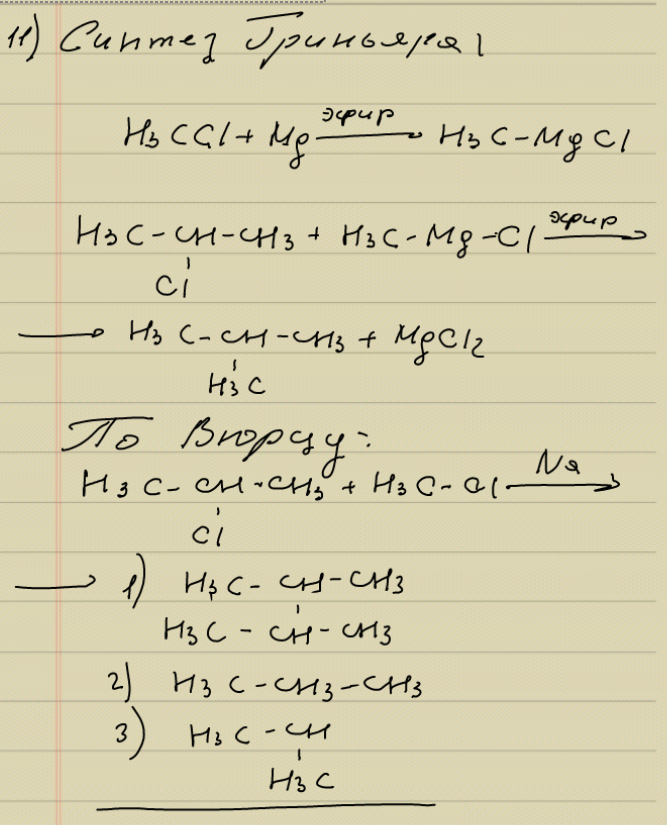 11) Синтез Гриньяра
H3CCl + Mg эфир→ H3C-MgCl
H3C-CH-CH3 + H3C-Mg-Cl эфир→
Cl
→ H3C-CH-CH3 + MgCl2
H3C
По Вюрцу:
H3C-CH-CH3 + H3C-Cl Na→
Cl
→ 1) H3C-CH-CH3
H3C-CH-CH3
2) H3C-CH3-CH3
3) H3C-CH
H3C